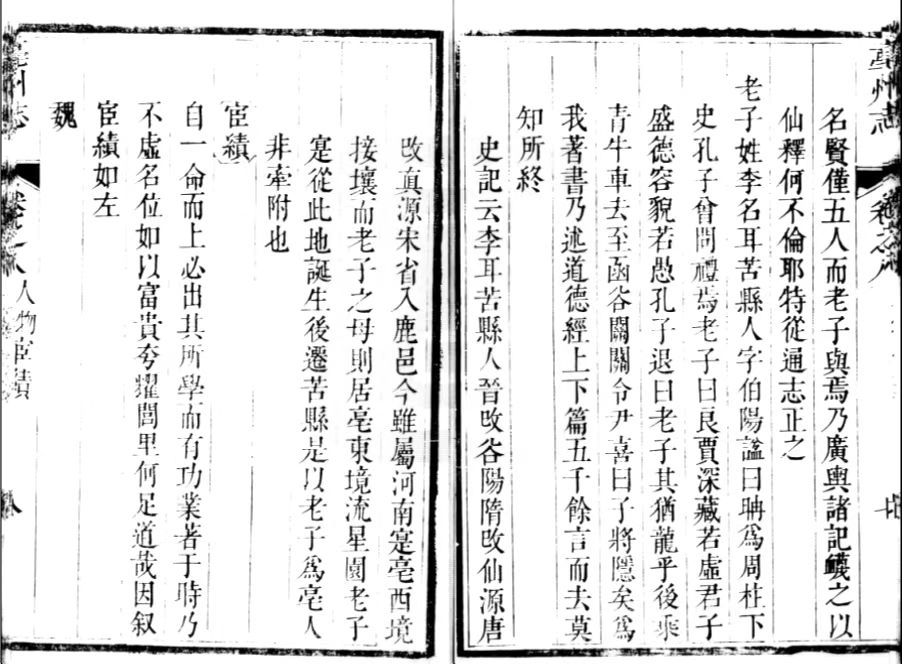 亳州志
卷之八
名賢僅五人而老子與焉乃廣輿諸記畿之以
仙釋何不倫耶特從通志正之
老子姓李名耳苦縣人字伯陽諡曰聃爲周柱下
史孔子曾問禮焉老子曰良賈深藏若虛君子
盛德容貌若愚孔子退曰老子其猶龍乎後乘
青牛車去至函谷關關令尹喜曰子將隱矣爲
我著書乃述道德經上下篇五千餘言而去莫
知所終
史記云李耳苦縣人晉改谷陽隋改仙源唐
改真源宋省入鹿邑今雖屬河南寔亳西境
接壤而老子之母則居亳東境流星園老子
寔從此地誕生後遷苦縣是以老子爲亳人
非牽附也
宦績
自一命而上必出其所學而有功業著于時乃
不虛名位如以富貴夸耀閭里何足道哉因叙
宦績如左
魏
亳州志
卷之八
人物宦績
八